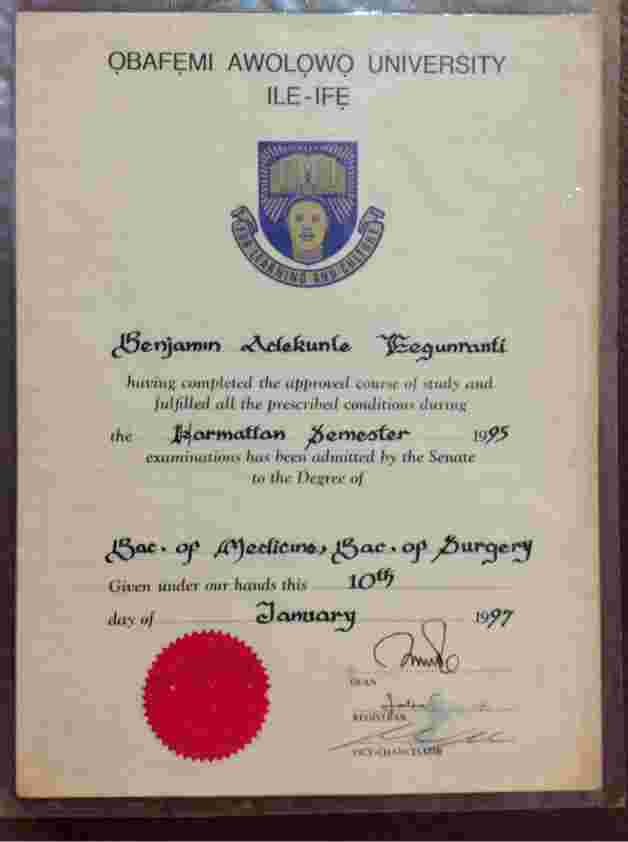 ỌBAFẸMI AWOLỌWỌ UNIVERSITY
ILE-IFẸ
FOR LEARNING AND CULTURE
Benjamin Adekunle Eegunranti
having completed the approved course of study and
fulfilled all the prescribed conditions during
the Harmattan Semester 1995
examinations has been admitted by the Senate
to the Degree of
Bac. of Medicine, Bac. of Surgery
Given under our hands this 10th
day of January 1997
DEAN
REGISTRAR
VICE-CHANCELLOR